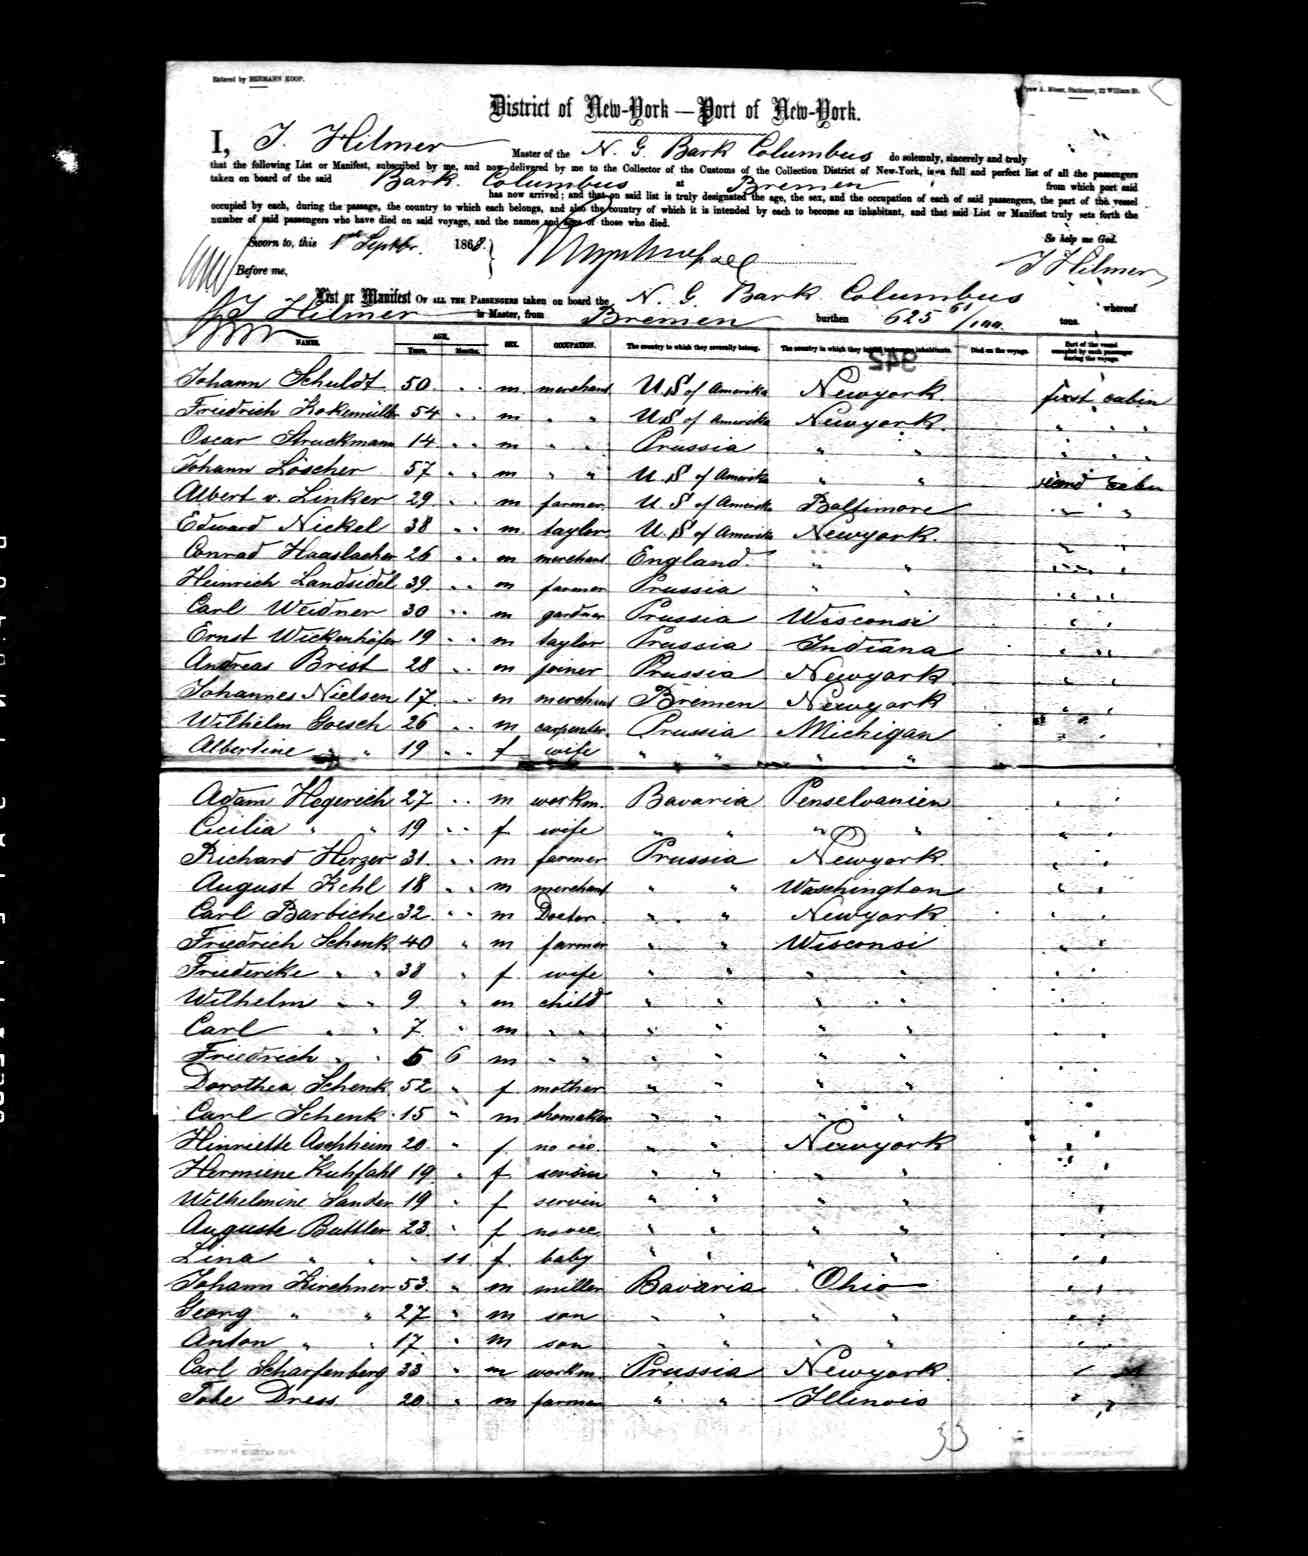 Entered by HERMANN KOOP.
District of New-York — Port of New-York.
I, J. Hilmer Master of the N. G. Bark Columbus do solemnly, sincerely and truly
that the following List or Manifest, subscribed by me, and now delivered by me to the Collector of the Customs of the Collection District of New-York, is a full and perfect list of all the passengers
taken on board of the said Bark Columbus at Bremen from which port said
has now arrived; and that on said list is truly designated the age, the sex, and the occupation of each of said passengers, the part of the vessel
occupied by each, during the passage, the country to which each belongs, and also the country of which it is intended by each to become an inhabitant, and that said List or Manifest truly sets forth the
number of said passengers who have died on said voyage, and the names and ages of those who died.
Sworn to, this 1st Septbr. 1868. So help me God.
Before me, J Hilmer
List or Manifest OF ALL THE PASSENGERS taken on board the N. G. Bark Columbus whereof
J. Hilmer is Master, from Bremen burthen 625 61/100 tons.
NAMES. AGE. Years. Months. SEX. OCCUPATION. The country to which they severally belong. The country in which they intend to become inhabitants. Died on the voyage. Part of the vessel occupied by each passenger during the voyage.
942
Johann Schuldt 50 . . m. merchant U S of Amerika Newyork. first cabin
Friedrich Kokemüller 54 . . m " " U S of Amerika Newyork. " "
Oscar Struckmann 14 . . m " " Prussia " " " "
Johann Löscher 57 . . m " " U. S of Amerika " " second cabin
Albert v. Linker 29 . . m farmer U. S of Amerika Baltimore " "
Edward Nickel 38 . . m. taylor U. S of Amerika Newyork. " "
Conrad Haaslacher 26 . . m merchant England. " " " "
Heinrich Landsidel 39 . . m farmer Prussia " " " "
Carl Weidner 30 . . m gardner Prussia Wisconsi " "
Ernst Wickenhöfer 19 . . m taylor Prussia Indiana " "
Andreas Brist 28 . . m joiner Prussia Newyork " "
Johannes Nielsen 17 . . m merchant Bremen Newyork " "
Wilhelm Goesch 26 . . m carpenter Prussia Michigan " "
Albertine " " 19 . . f wife " " " "
Adam Hogerich 27 . . m workm. Bavaria Penselvanien " "
Cicilia " " 19 . . f wife " " " " " "
Richard Herzer 31 . . m farmer Prussia Newyork " "
August Kehl 18 . . m merchant " " Waschington " "
Carl Barbiche 32 . . m Doctor " " Newyork " "
Friedrich Schenk 40 " m farmer " " Wisconsi " "
Friederike " " 38 " f wife " " " " " "
Wilhelm " " 9 " m child " " " " "
Carl " " 7 " m " " " " " " "
Friedrich " " 5 6 m " " " " " " " "
Dorothea Schenk 52 " f mother " " " " " "
Carl Schenk 15 " m shomaker " " " " "
Henriette Aschheim 20 " f no oc. " " Newyork "
Hermine Kuhfahl 19 " f " " " " "
Wilhelmine Sander 19 " f servin " " " " " "
Auguste Buttler 23 " f no occ " " " " " "
Lina " " " 11 f. baby " " " " " "
Johann Kirchner 53 " m miller Bavaria Ohio " "
Georg " " 27 " m son " " " " " "
Anton " " 17 " m son " " " " " "
Carl Scharfenberg 33 " m workm. Prussia Newyork "
Tobe Dress 20 " m farmer " " Illinois " "
33